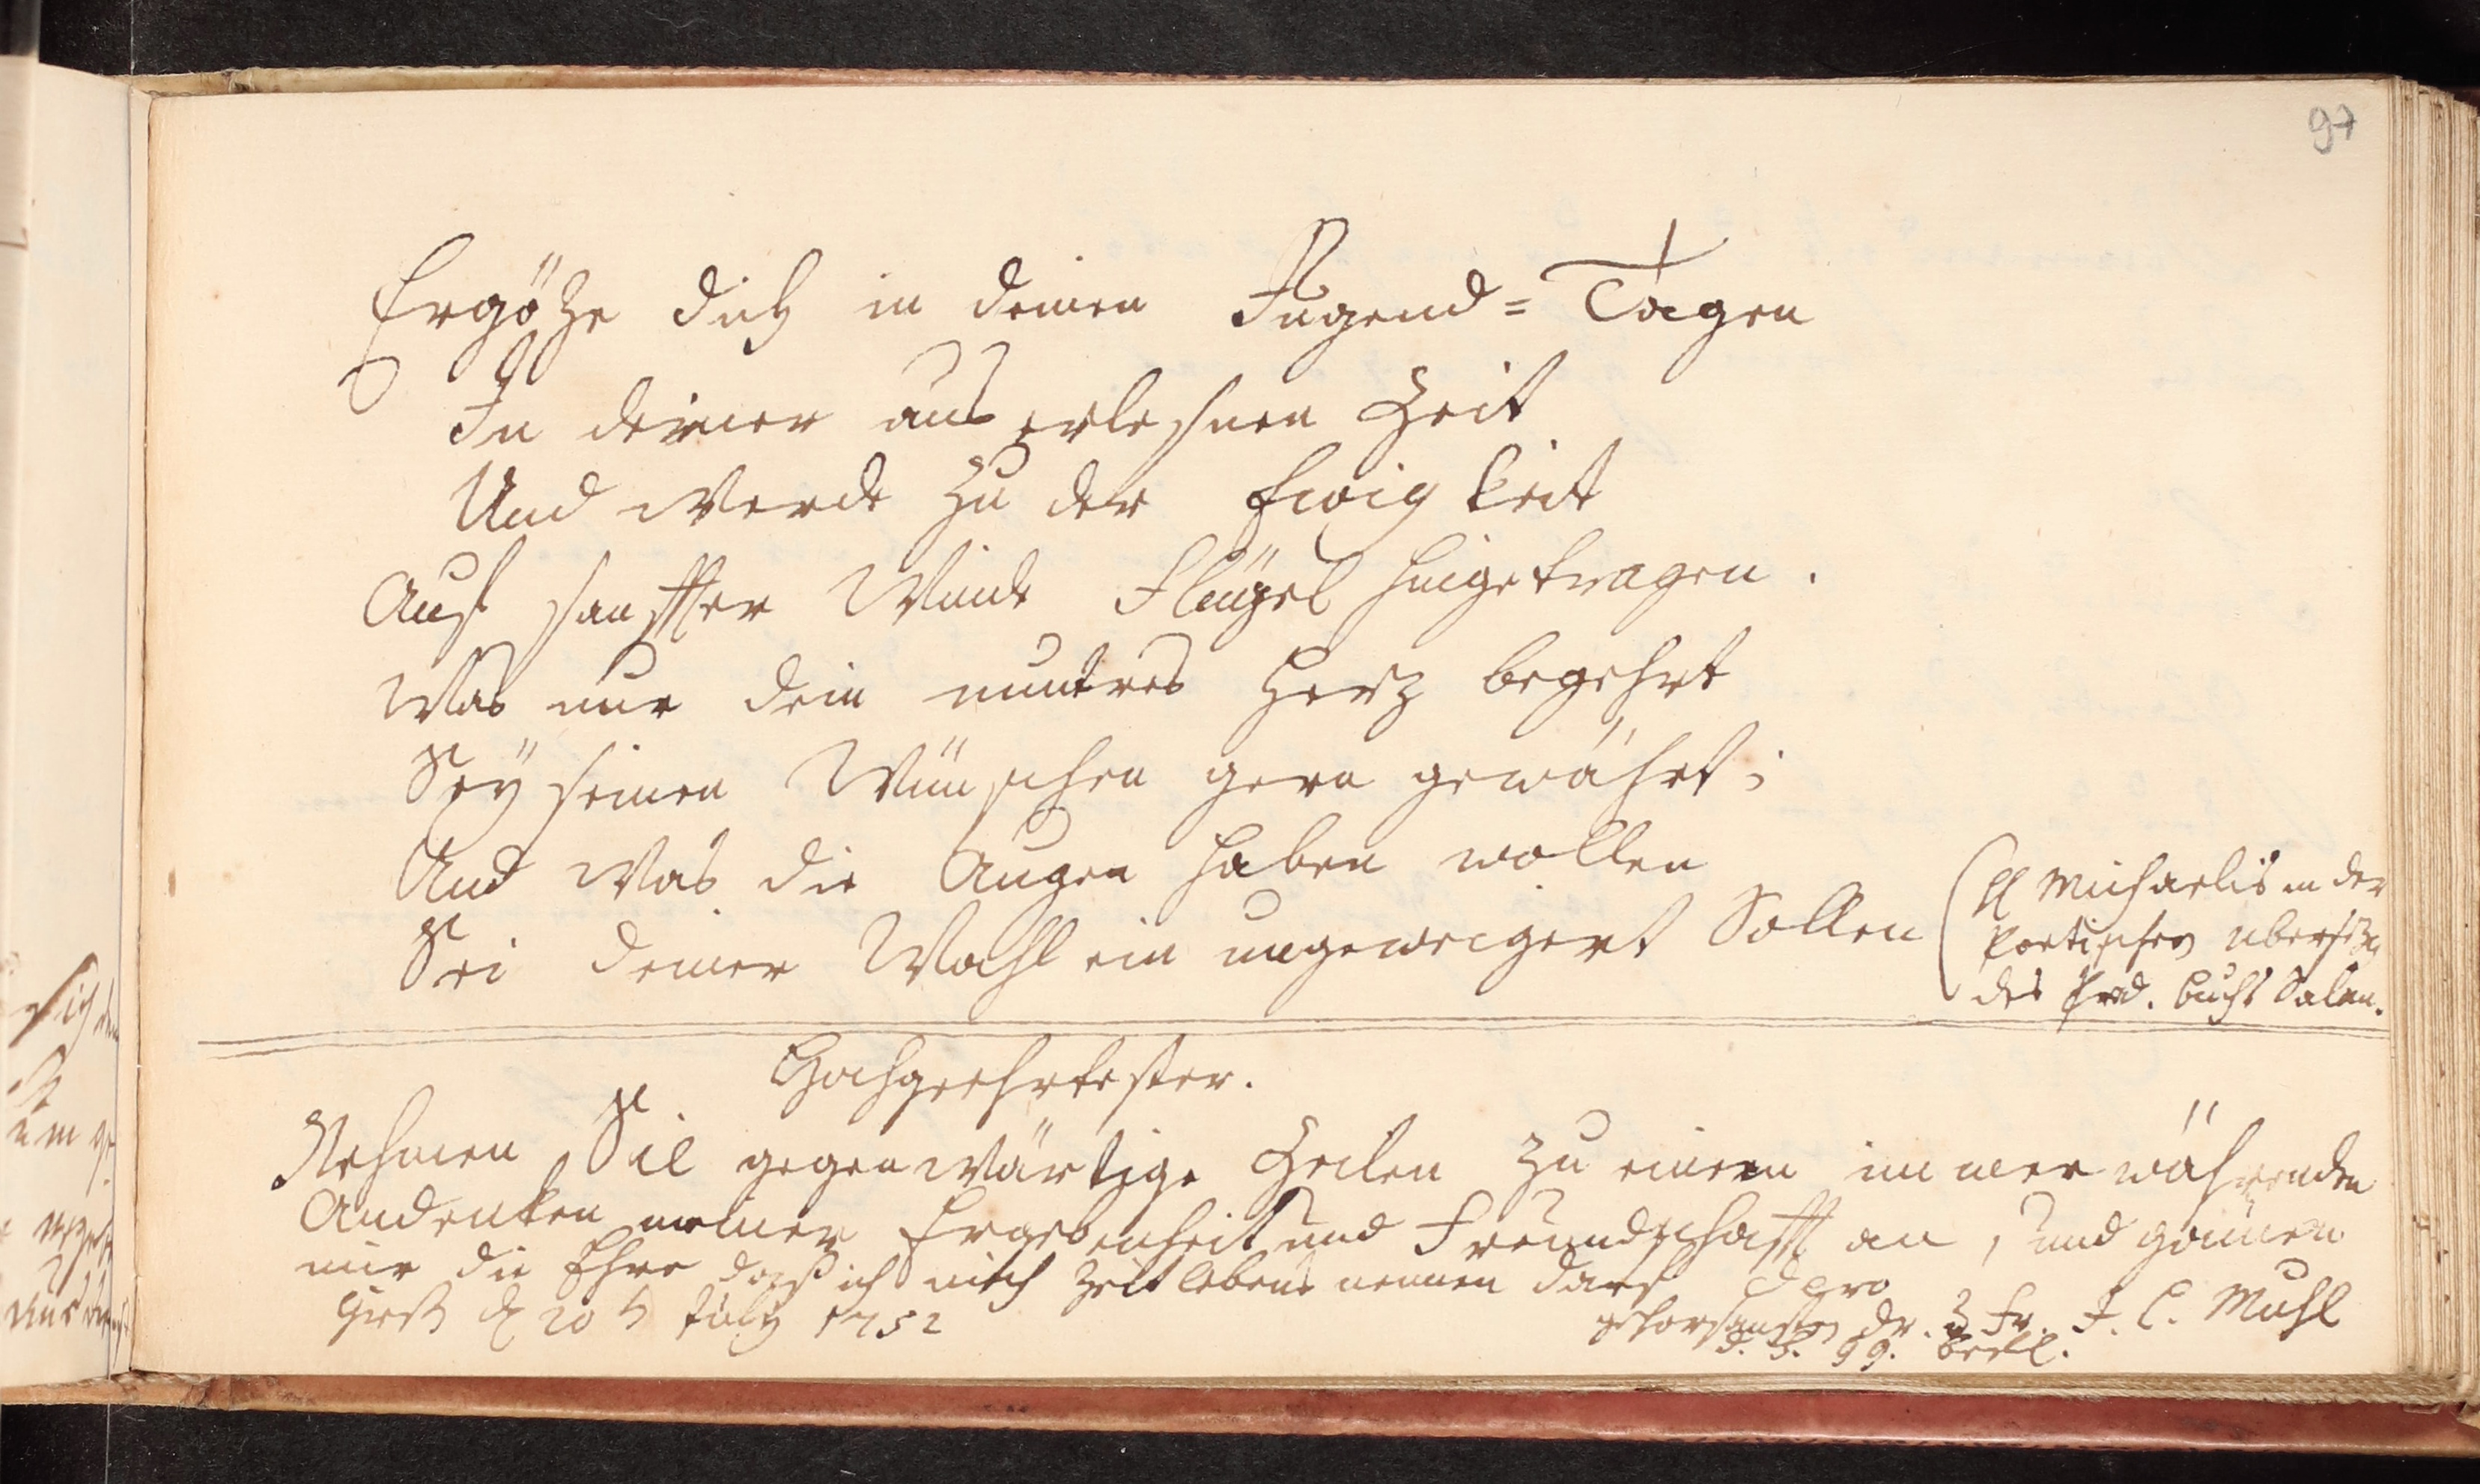 97
Ergöze dich in deinen Jugend = Tagen
In deiner auserlesnen Zeit
Und werde zu der Ewigkeit
Auf sanffter Winde Flügel hingetragen.
Was nur dein muntres Herz begehrt
Seÿ seinen Wünschen gern gewährt;
Und was die Augen haben wollen
Sei deiner Wahl ein ungeweigert Sollen
H Michaelis in der
Poetischen Ubersezg
des Pred. buchs Salom.
Hochgeehrtester.
Nehmen Sie gegenwärtige Zeilen zu einem immer währenden
Andenken meiner Ergebenheit und Freundschafft an, und gönnen
mir die Ehre daß ich mich Zeitlebens nennen darf Dero
d 20 July 1752
gehorsamsten Dr. u Fr. J. C. Muhl